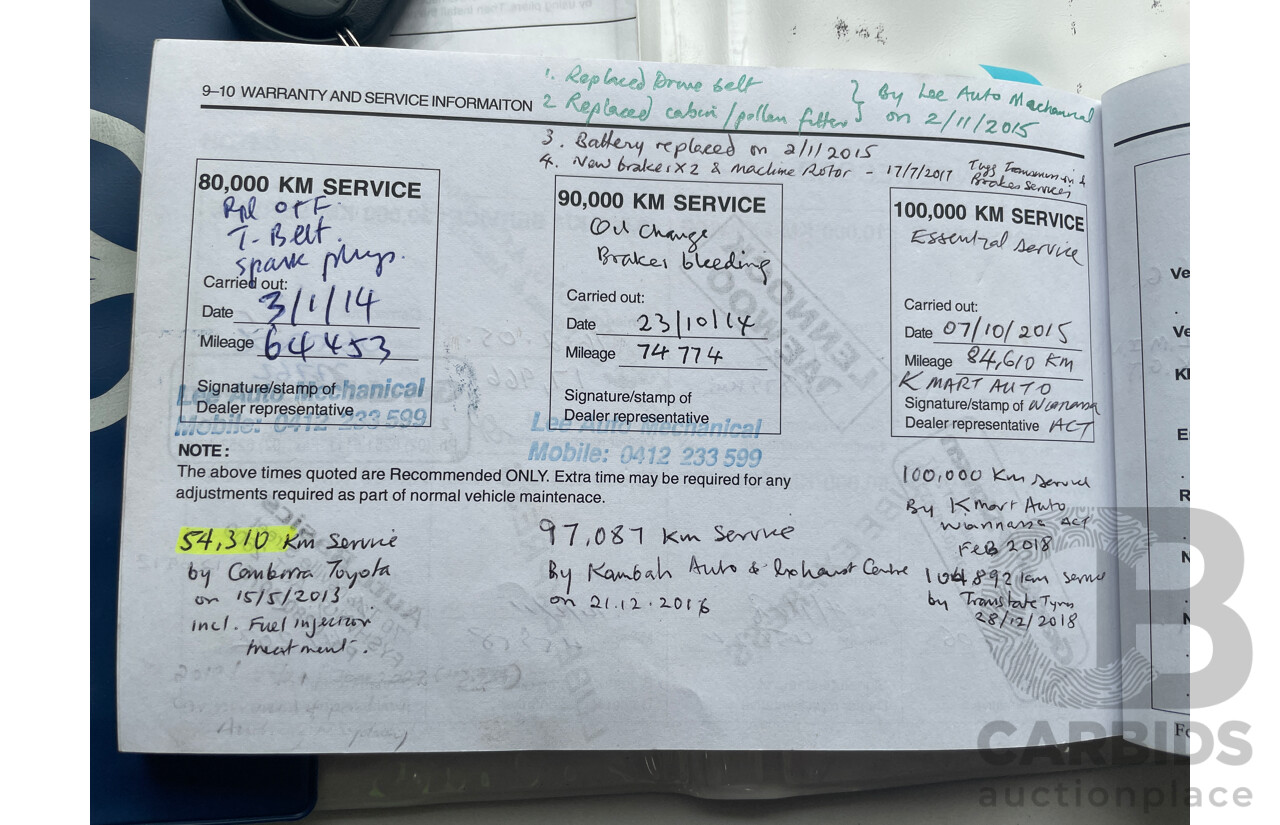 1. Replaced Drive belt
2 Replaced cabin/pollen filter
} By Lee Auto Mechanical
on 2/11/2015
9–10 WARRANTY AND SERVICE INFORMAITON
3. Battery replaced on 2/11/2015
4. New brakes x2 & machine Rotor - 17/7/2017
Tugg Transmission &
Brakes Services
80,000 KM SERVICE
Rpl O+F.
T-Belt.
spark plugs.
Carried out:
Date 3/1/14
Mileage 64453
Signature/stamp of
Dealer representative
Lee Auto Mechanical
Mobile: 0412 233 599
90,000 KM SERVICE
Oil Change
Brakes bleeding
Carried out:
Date 23/10/14
Mileage 74 774
Signature/stamp of
Dealer representative
Lee Auto Mechanical
Mobile: 0412 233 599
100,000 KM SERVICE
Essential service
Carried out:
Date 07/10/2015
Mileage 84,610 KM
KMART AUTO
Signature/stamp of Wanniassa
Dealer representative ACT
NOTE:
The above times quoted are Recommended ONLY. Extra time may be required for any
adjustments required as part of normal vehicle maintenace.
54,310 Km Service
by Canberra Toyota
on 15/5/2013
incl. Fuel injector
treatment.
97,087 km Service
By Kambah Auto & Exhaust Centre
on 21.12.2016
100,000 Km Service
By Kmart Auto
Wanniassa ACT
Feb 2018
104892 km service
by Transtate Tyres
28/12/2018
CARBIDS
auctionplace